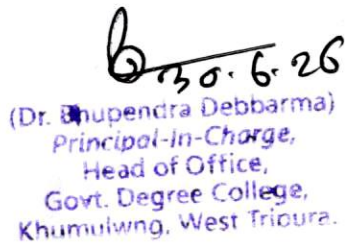 30.6.26
(Dr. Bhupendra Debbarma)
Principal-in-Charge,
Head of Office,
Govt. Degree College,
Khumulwng, West Tripura.